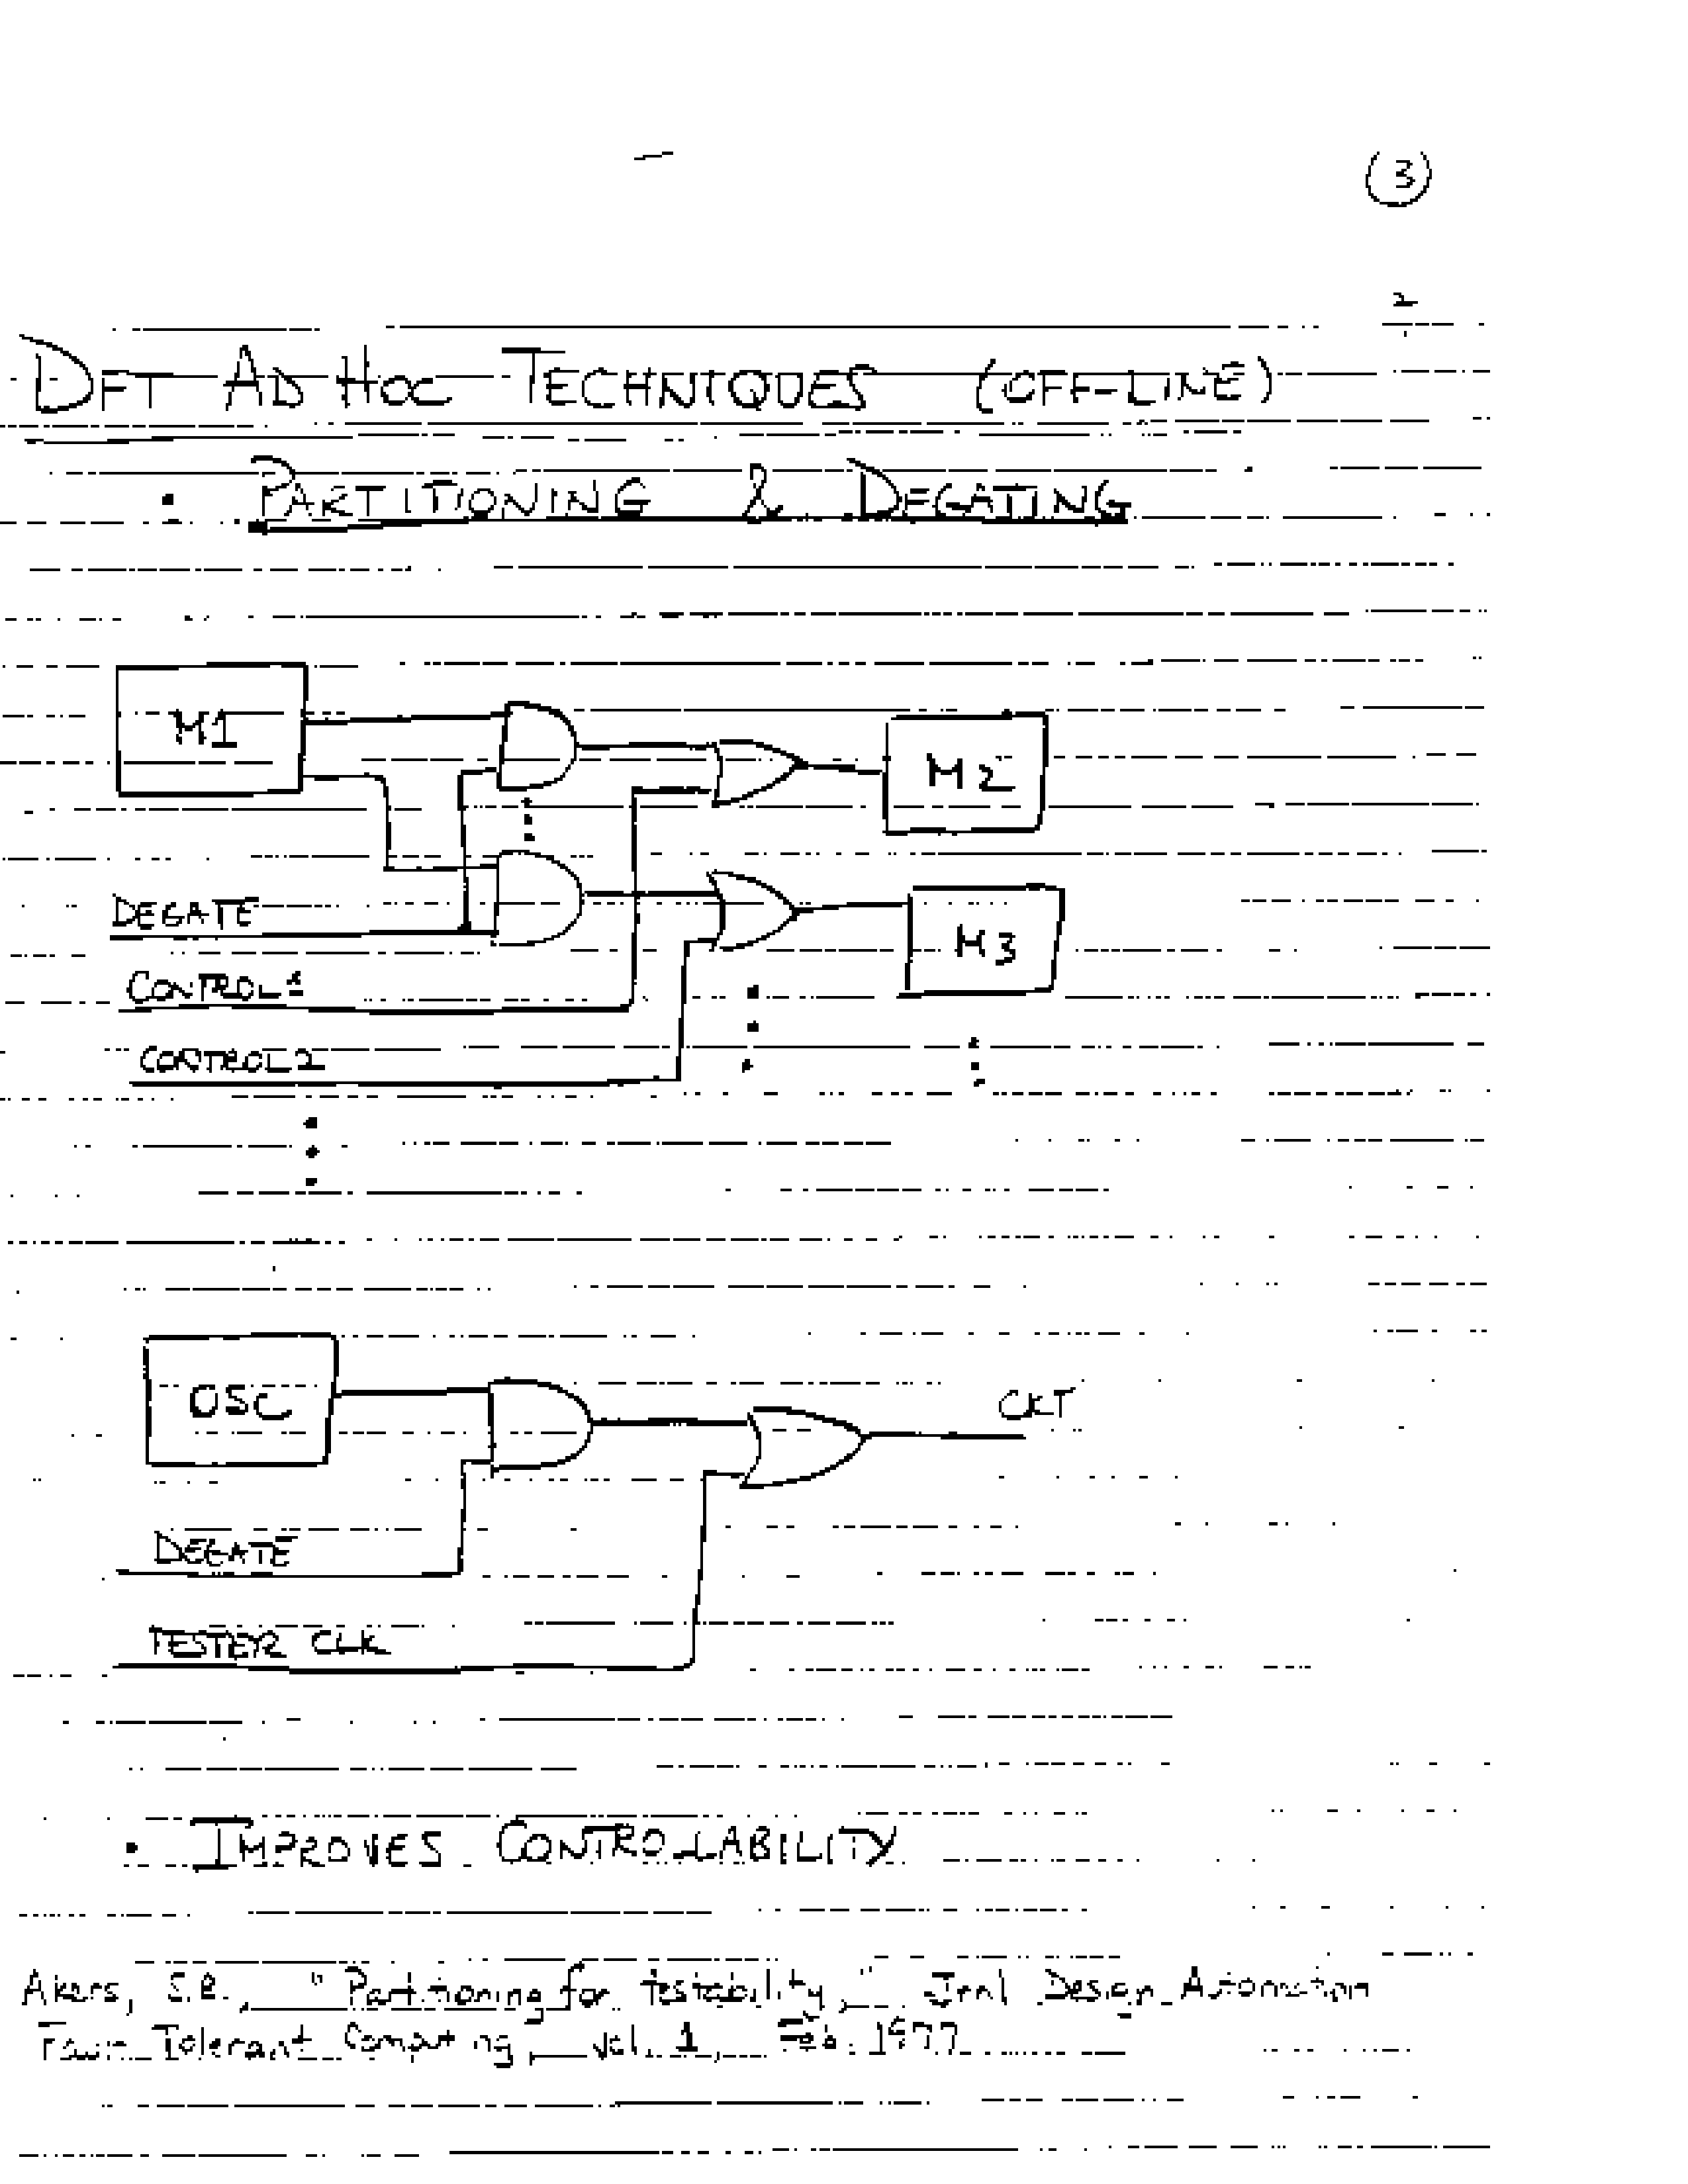 (3)
DFT AD HOC TECHNIQUES (OFF-LINE)
• PARTITIONING & DEGATING
M1
M2
DEGATE
M3
CONTROL1
CONTROL2
OSC
CKT
DEGATE
TESTER CLK
• IMPROVES CONTROLLABILITY
Akers, S.B., "Partitioning for testability," Jrnl Design Automation
Fault Tolerant Computing, vol. 1, Feb. 1977